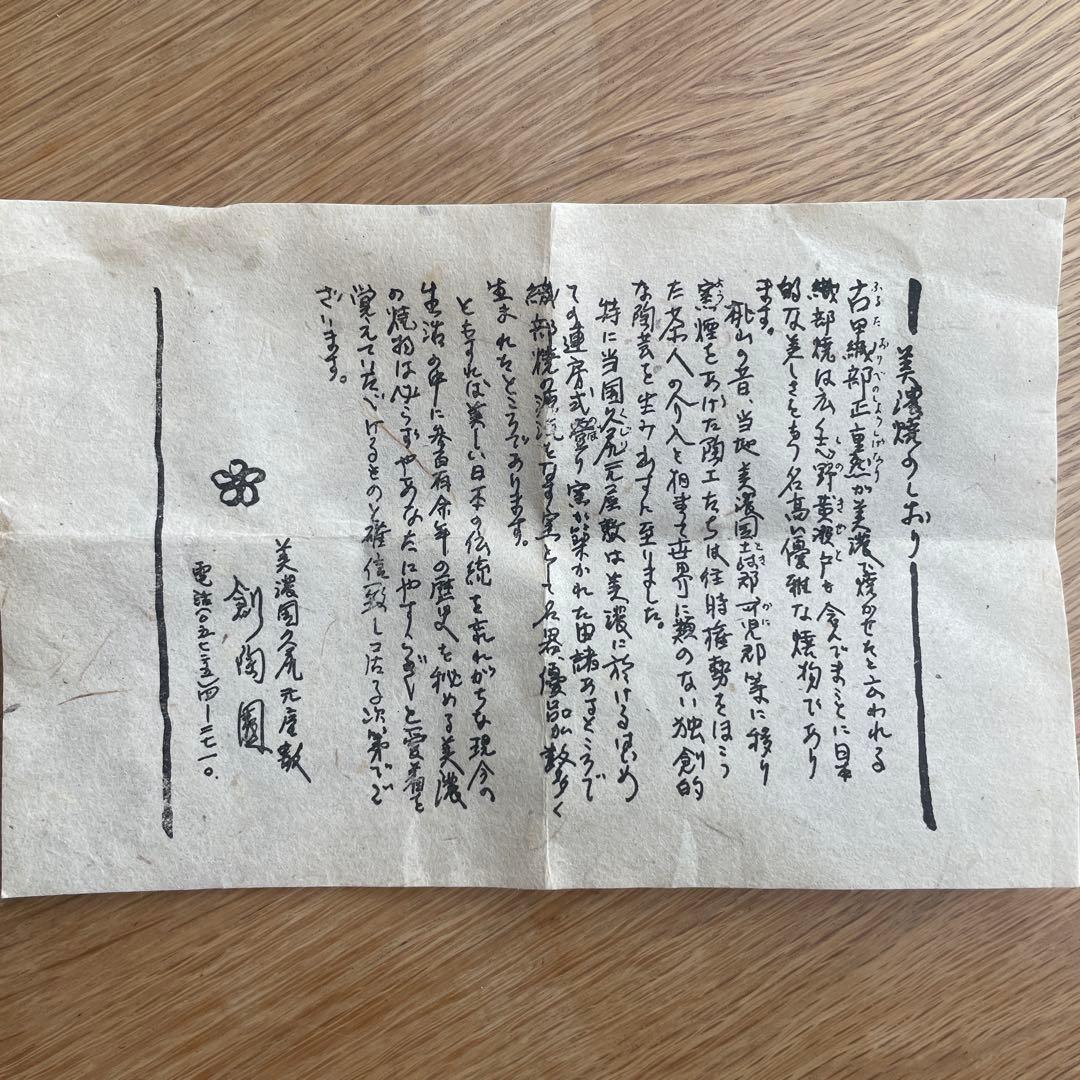 美濃焼のしおり
古田織部正重然が美濃で焼かせたと云われる
織部焼は広く志野黄瀬戸を含んでまことに日本
的な美しさをもつ名高い優雅な焼物であり
ます。
桃山の昔、当地美濃国土岐郡可児郡等に移り
窯煙をあげた陶工たちは往時権勢をほこっ
た茶人の介入と相まって世界に類のない独創的
な陶芸を生み出すに至りました。
特に当国久尻元屋敷は美濃に於けるはじめ
ての連房式登り窯が築かれた由諸あるところで
織部焼の源流をなす窯として名器優品が数多く
生まれたところであります。
ともすれば美しい日本の伝統を忘れがちな現今の
生活の中に参百有余年の歴史を秘める美濃
の焼物は必らずやあなたにやすらぎと愛着を
覚えていただけるものと確信致して居る次第でご
ざいます。
美濃国久尻元屋敷
創陶園
電話〇五七二五四-二七一〇